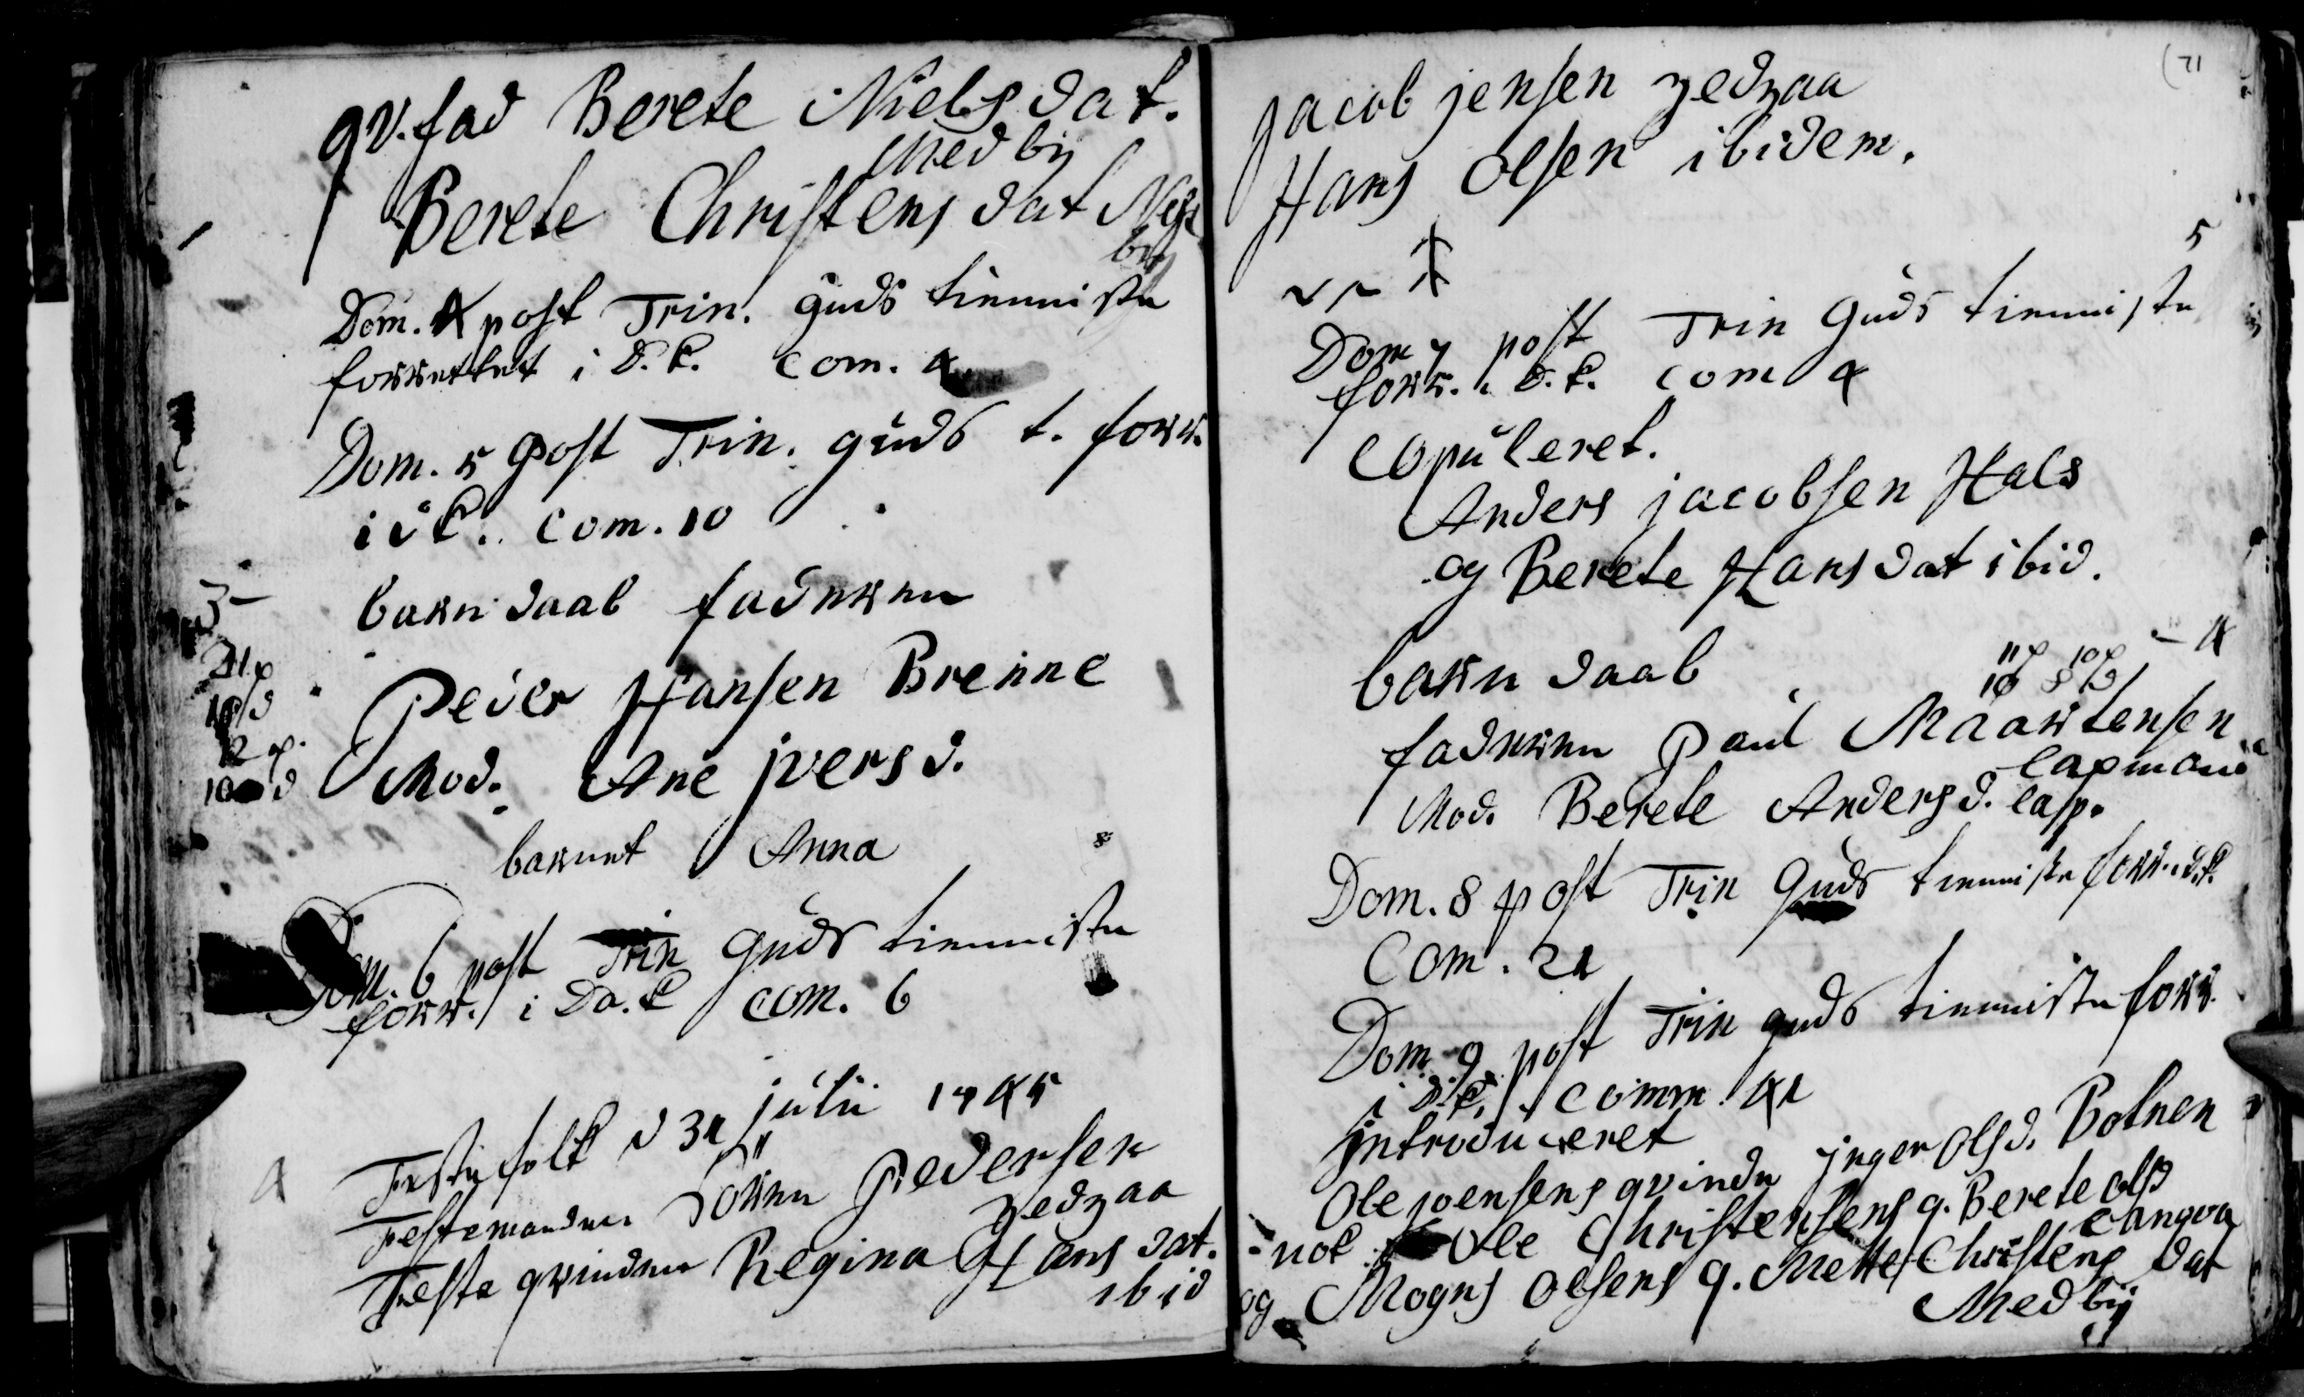 qv. fad Berete Niels dat.
Medby
Berete Christens dat Nese
by
Dom. 4 post Trin. guds tienniste
forrettet i D.k. Com. 4
Dom. 5 post Trin. guds t. forr.
i d k. Com. 10
3 -
barn daab faderen
Peder Hansen Brenne
Mod. Ane jversd.
barnet Anna
Dom. 6 post Trin Guds tienniste
forr. i Da.k com. 6
Feste folk d 31 julii 1745
4
Festemanden Sören Pedersen
Zedzaa
Feste qvinden Regina Hans dat.
ibid
(71
Jacob jensen Zedzaa
Hans Olsen ibidem.
5
Dom 7 post Trin Guds tienniste
forr. i D.k. com 4
Copuleret.
Anders jacobsen Hals
og Berete Hans dat ibid.
barn daab
- 4
faderen Paul Maartensen
lapmand
Mod. Berete Andersd. lapp.
Dom. 8 post Trin Guds tienniste forr. i d.k.
Com. 21
Dom 9 post Trin guds tienniste forr.
i d.k. Comm 41
Introduceret
Ole joensens qvinde jnger Olsd. Botnen
nok Ole Christensens q. Berete olsd
Langvag
og Mogns Olsens q. Mette Christens dat
Medby